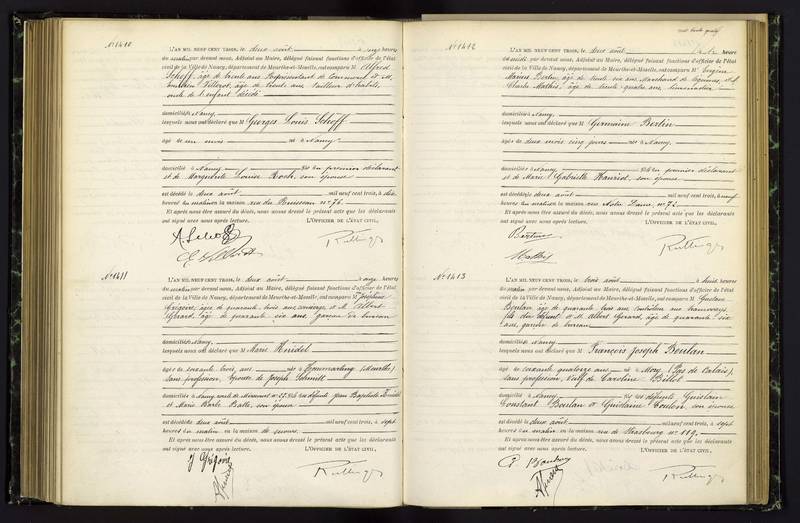 N° 1410
L'AN MIL NEUF CENT TROIS, le deux août à onze heures
du matin par devant nous, Adjoint au Maire, délégué faisant fonctions d'officier de l'état
civil de la Ville de Nancy, département de Meurthe-et-Moselle, ont comparu M Alfred
Schoff, âgé de trente ans, Représentant de Commerce et M.
Villerot, âgé de trente ans, Tailleur d'habits,
oncle de l'enfant décédé
domiciliés à Nancy
lesquels nous ont déclaré que M Georges Louis Schoff
âgé de un mois né à Nancy
domicilié à Nancy fils du premier déclarant
et de Marguerite Louise Roch, son épouse
est décédé le deux août mil neuf cent trois, à dix
heures du matin en la maison rue du Ruisseau n° 76
Et après nous être assuré du décès, nous avons dressé le présent acte que les déclarants
ont signé avec nous après lecture. L'OFFICIER DE L'ÉTAT CIVIL,
A. Schoff
N° 1411
L'AN MIL NEUF CENT TROIS, le deux août à onze heures
du matin par devant nous, Adjoint au Maire, délégué faisant fonctions d'officier de l'état
civil de la Ville de Nancy, département de Meurthe-et-Moselle, ont comparu M Joséphine
Grégoire, âgée de quarante trois ans, concierge, et M. Albert
Gérard, âgé de quarante six ans, garçon de bureau
domiciliés à Nancy
lesquels nous ont déclaré que M Marie Knidel
âgée de soixante trois ans née à (Meurthe)
sans profession, épouse de Joseph Schmitt
domiciliée à Nancy, fille des défunts Jean Baptiste Knidel
et Marie Barbe Balte, son épouse
est décédée deux août mil neuf cent trois, à sept
heures du matin en la maison de secours
Et après nous être assuré du décès, nous avons dressé le présent acte que les déclarants
ont signé avec nous après lecture. L'OFFICIER DE L'ÉTAT CIVIL,
J Grégoire
N° 1412
L'AN MIL NEUF CENT TROIS, le deux août à heure
de midi par devant nous, Adjoint au Maire, délégué faisant fonctions d'officier de l'état
civil de la Ville de Nancy, département de Meurthe-et-Moselle, ont comparu M Eugène
Marius Bertin, âgé de trente six ans, Marchand de légumes, et M.
Charles Mathis, âgé de trente quatre ans,
domiciliés à Nancy
lesquels nous ont déclaré que M Germaine Bertin
âgée de deux mois cinq jours née à Nancy
domiciliée à Nancy fille du premier déclarant
et de Marie Gabrielle Hanriot, son épouse
est décédée le deux août mil neuf cent trois, à neuf
heures du matin en la maison rue Notre Dame, n° 72
Et après nous être assuré du décès, nous avons dressé le présent acte que les déclarants
ont signé avec nous après lecture. L'OFFICIER DE L'ÉTAT CIVIL,
Bertin
Mathis
N° 1413
L'AN MIL NEUF CENT TROIS, le trois août à huit heures
du matin par devant nous, Adjoint au Maire, délégué faisant fonctions d'officier de l'état
civil de la Ville de Nancy, département de Meurthe-et-Moselle, ont comparu M Gustave
Boulan, âgé de quarante trois ans, contrôleur aux tramways,
fils du défunt et M. Albert Gérard, âgé de quarante six
ans, garçon de bureau
domiciliés à Nancy
lesquels nous ont déclaré que M François Joseph Boulan
âgé de soixante quatorze ans né à Mory (Pas de Calais)
sans profession, veuf de Caroline Billot
domicilié à Nancy fils des défunts Guislain
Constant Boulan et Guislaine Coulon, son épouse
est décédé le deux août mil neuf cent trois, à sept
heures du matin en la maison rue de Strasbourg n° 119
Et après nous être assuré du décès, nous avons dressé le présent acte que les déclarants
ont signé avec nous après lecture. L'OFFICIER DE L'ÉTAT CIVIL,